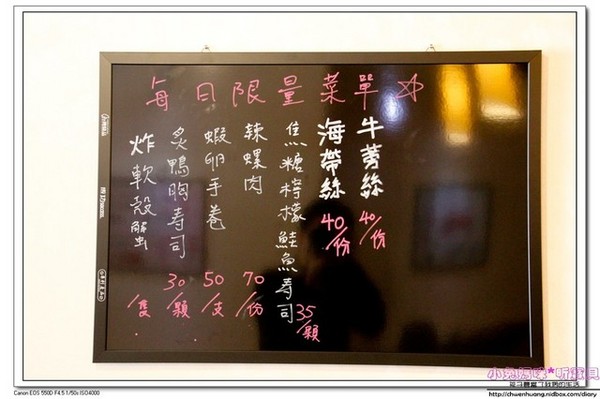 每日限量菜單☆
牛蒡絲 40/份
海帶絲 40/份
焦糖檸檬鮭魚壽司 35/顆
辣螺肉 70/份
蝦卵手卷 50/支
炙鴨胸壽司 30/顆
炸軟殼蟹 /隻
Canon EOS 550D F4.5 1/50s ISO4000
http://chuenhuang.nidbox.com/diary